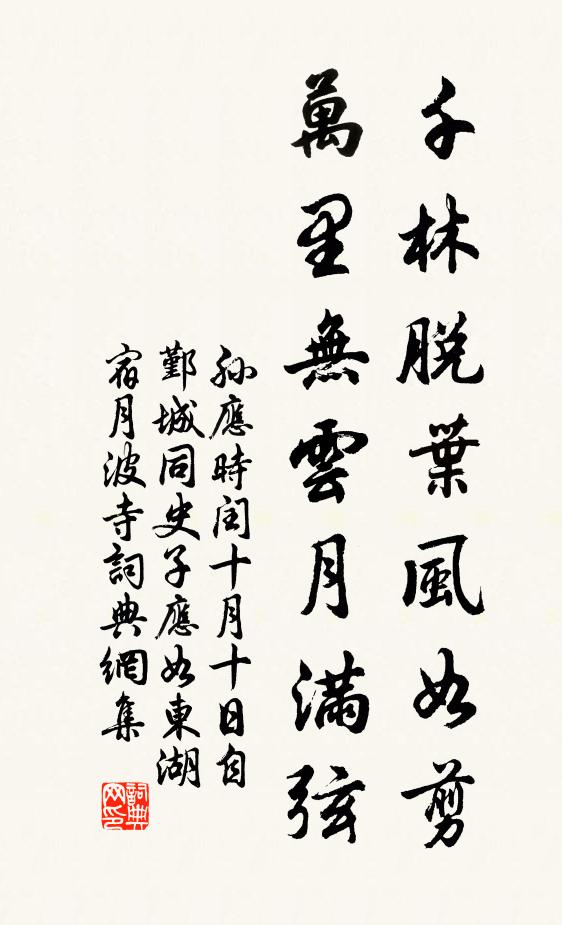 千林脫葉風如剪
萬里無雲月滿弦
孫應時閏十月十日自
鄞城同史子應如東湖
宿月波寺詞典網集
詞典网印